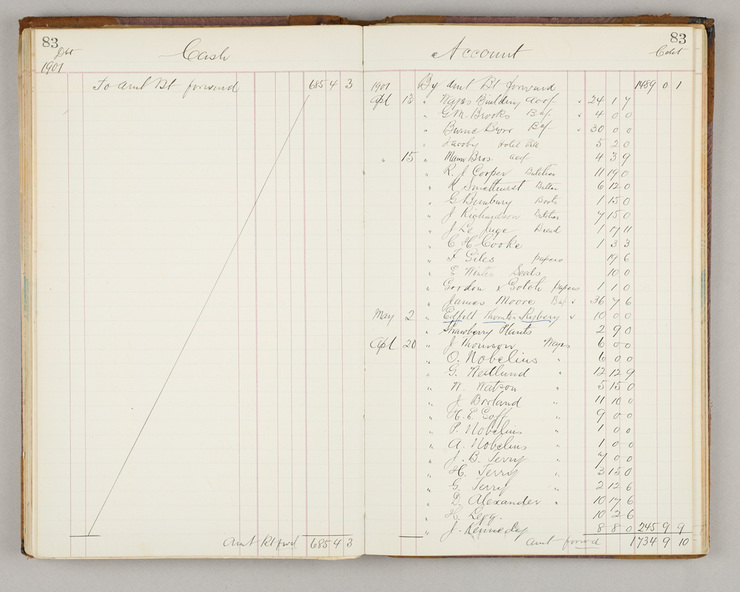 83
Dbt
Cash
1901
To amt Bt forward 685 4 3
Amt Bt fwd 685 4 3
83
Account
Cdt
1901 By amt Bt forward 1489 0 1
Apl 13 " Building " 24 1 7
" G M Brooks " 4 0 0
" Bros " 30 0 0
" Jacoby Hotel 5 2 0
" 15 " Bros 4 3 9
" R. J Cooper 11 19 0
" R Smethurst Butter 6 12 0
" G Bunbury Boots 1 15 0
" J Richardson 7 15 0
" J Le Juge Bread 1 17 11
" C H Cooke 1 3 3
" F Giles papers 19 6
" E Winter Seeds 10 0
" Gordon & Gotch papers 1 1 0
" James Moore " 36 7 6
May 2 " " 10 0 0
" Strawberry Plants 2 9 0
Apl 20 " J Thomson Wages 6 0 0
" O. Nobelius " 6 0 0
" G. Hedlund " 12 12 9
" W. Watson " 5 15 0
" J Borland " 11 10 0
" H. E. Goff " 9 0 0
" P. Nobelius " 1 0 0
" A. Nobelius " 1 0 0
" J. B. Terry " 7 0 0
" H. Terry " 3 15 0
" G. Terry " 2 12 6
" Alexander " 10 17 6
" H Legg " 10 2 6
" J. Kennedy 8 8 0 245 9 9
amt forwd 1734 9 10